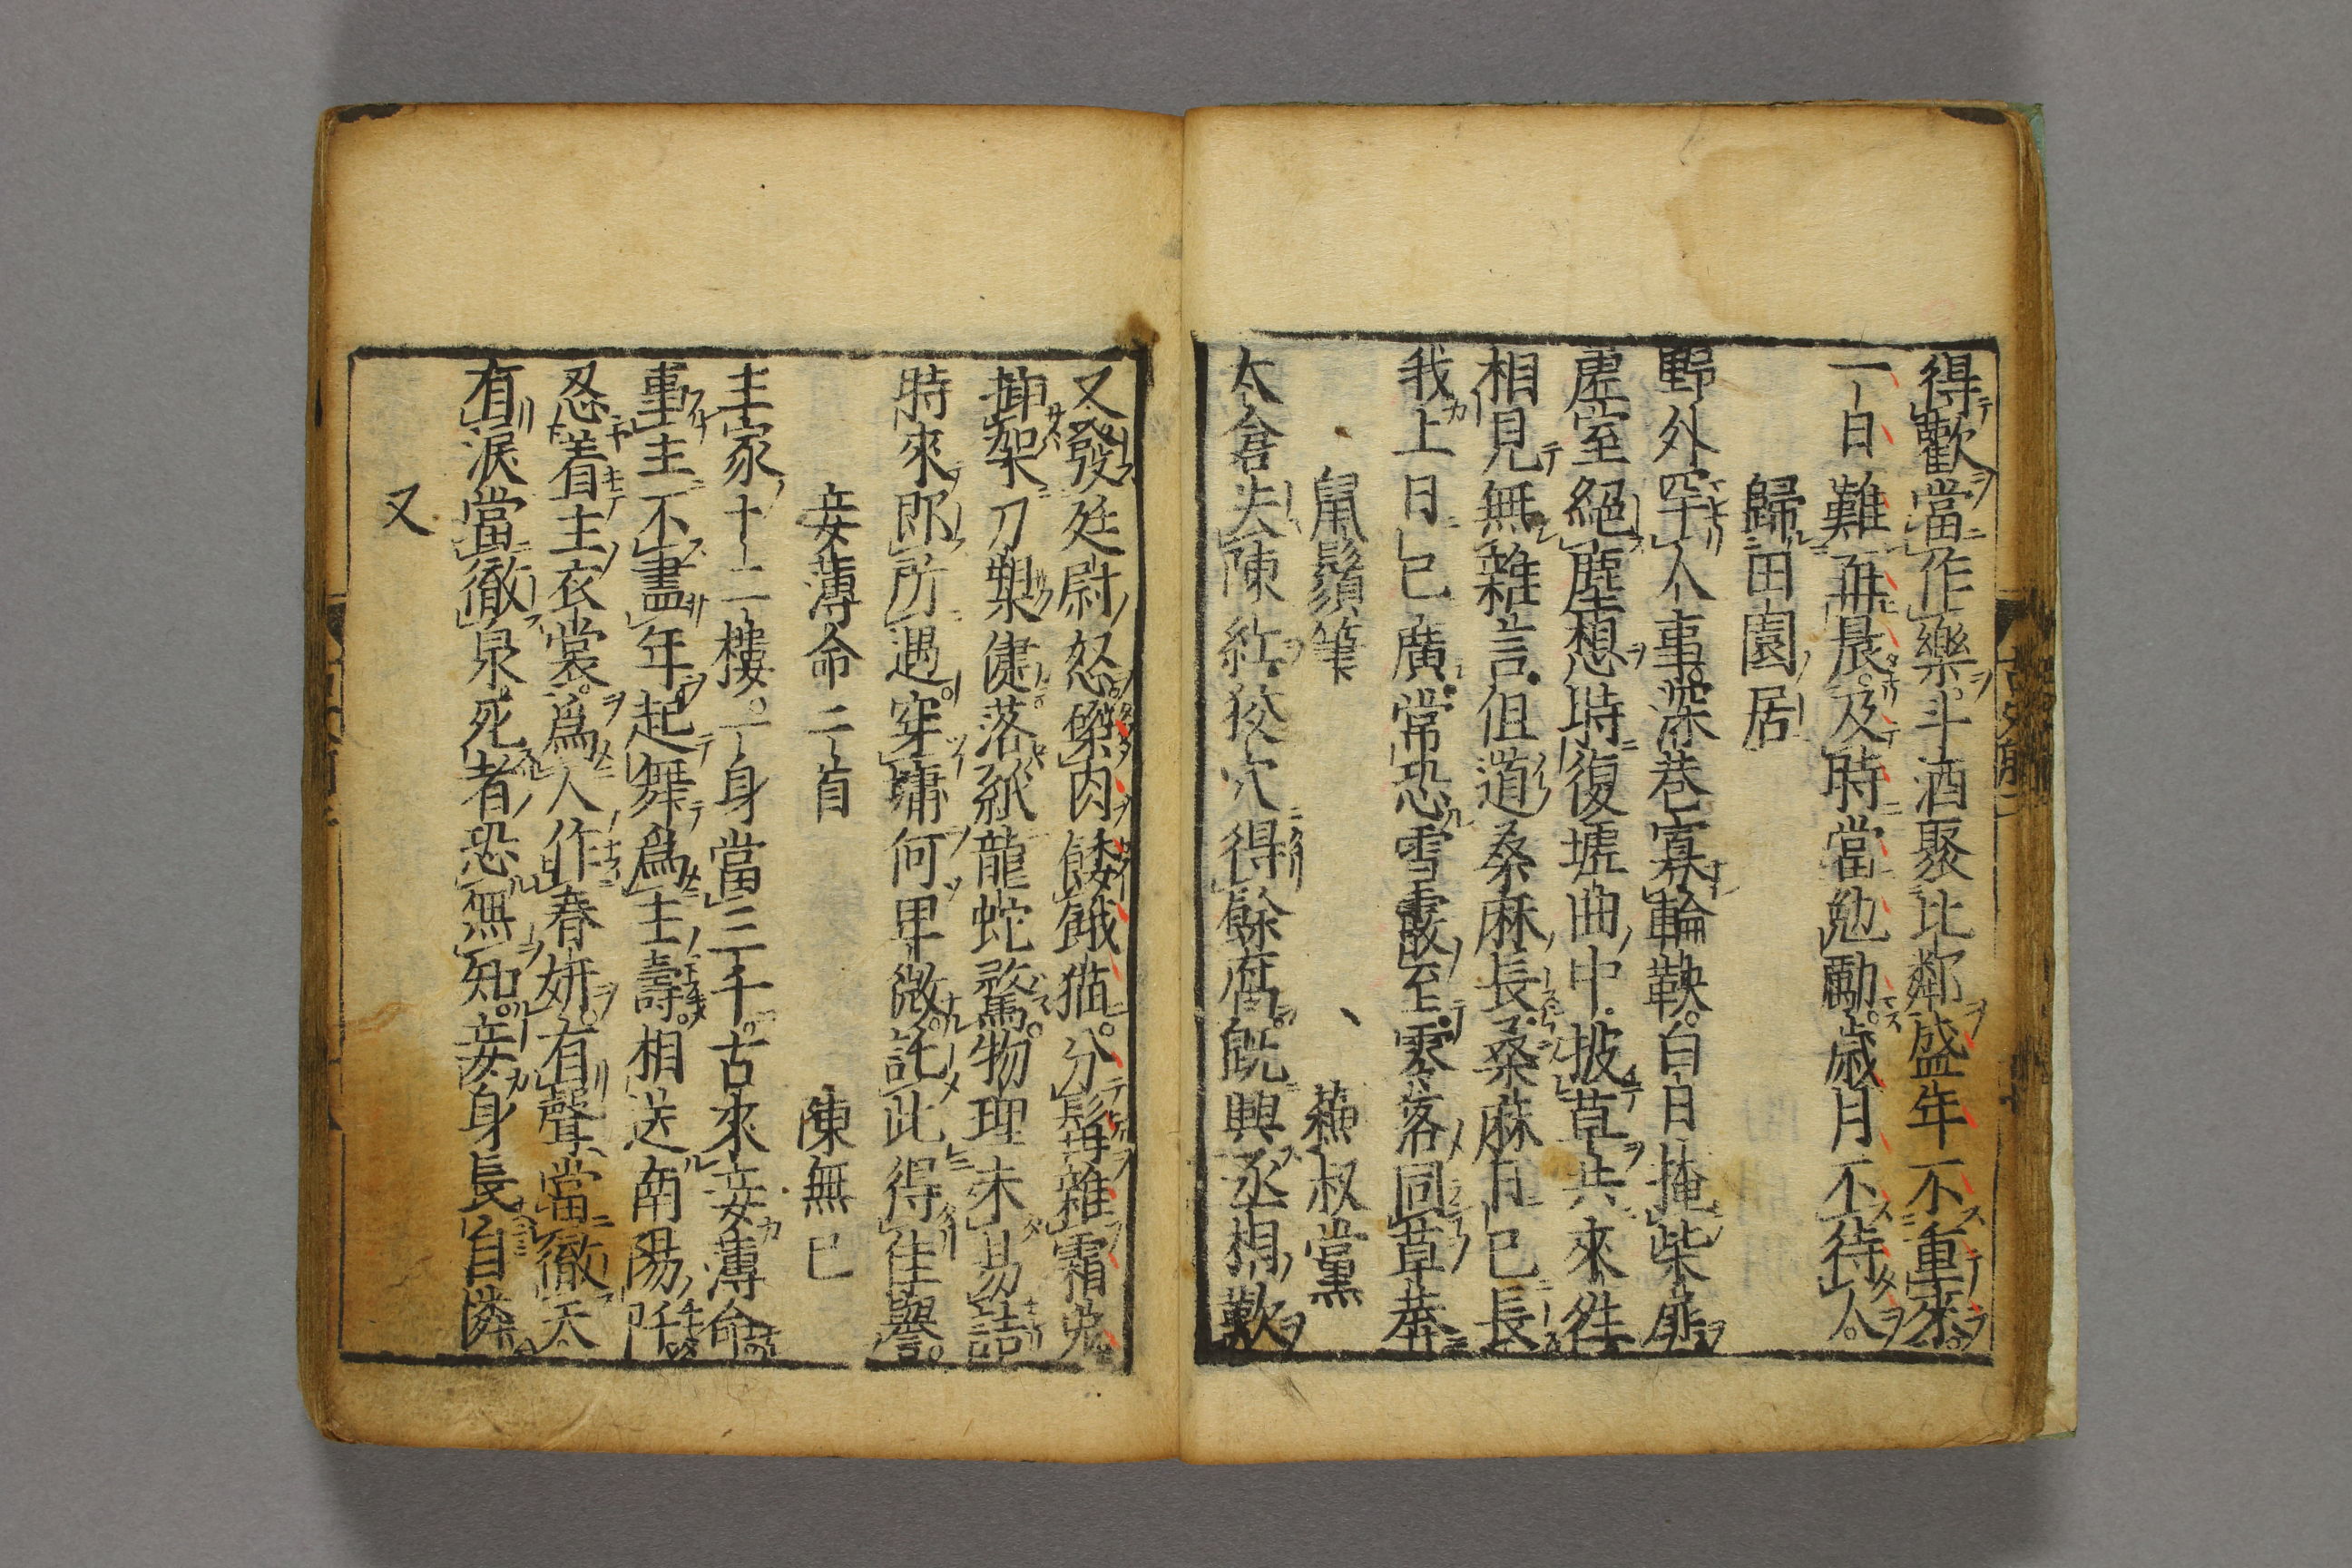 得歡當作樂。斗酒聚比鄰盛年不重來。
一日難再晨。及時當勉勵。歲月不待人。
歸田園居
野外罕人事。深巷寡輪鞅。白日掩柴扉
虛室絕塵想時復墟曲中披草共來往
相見無雜言但道桑麻長桑麻日已長
我土日已廣常恐雪霰至零落同草莽
鼠鬚筆 蘓叔黨
太倉失陳紅狡穴得餘腐既興丞相歎
又發廷尉怒。磔肉餧餓猫。分髯雜霜兔
挿架刀槊健。落紙龍蛇驚。物理未易詰
時來即所遇。穿墉何卑微。託此得佳譽。
妾薄命二首 陳無已
主家十二樓。一身當三千。古來妾薄命
事主不盡年起舞爲主壽。相送南陽阡
忍着主衣裳。爲人作春妍。有聲當徹天
有淚當徹泉死者恐無知。妾身長自憐
又